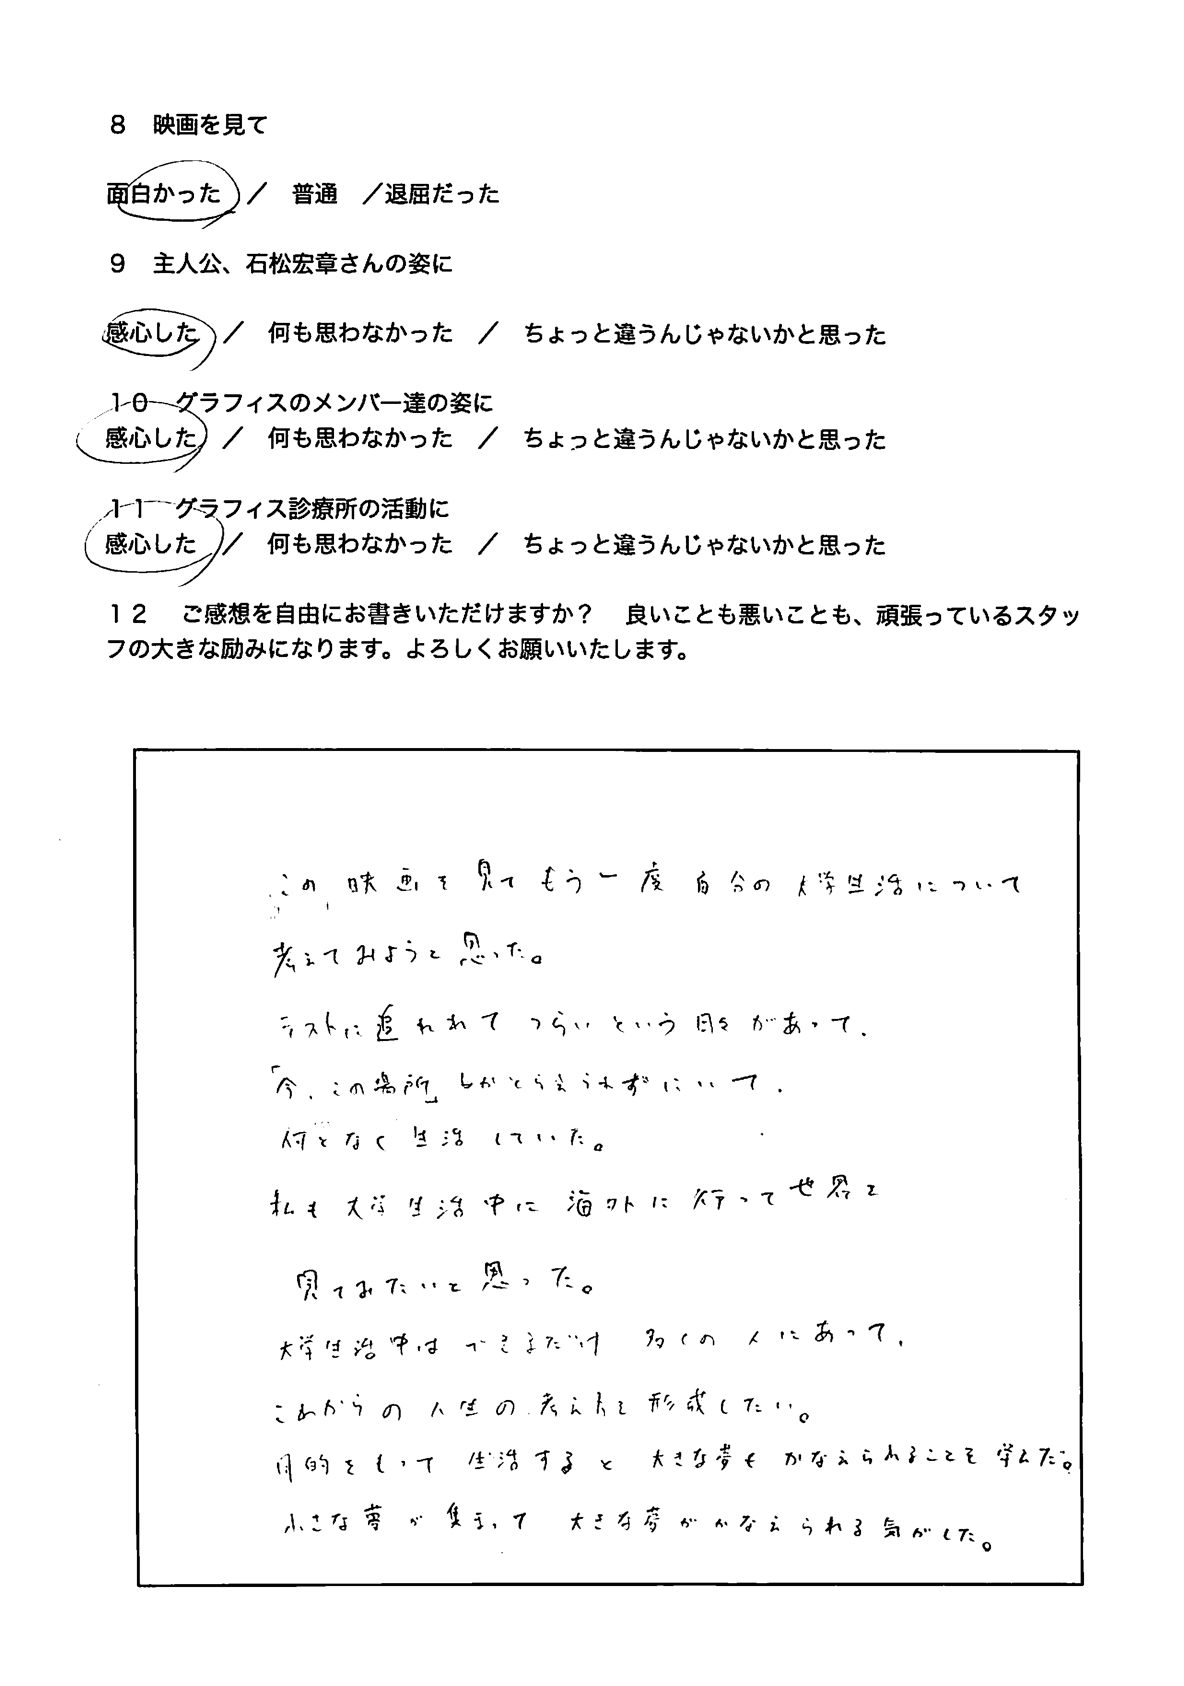 ８　映画を見て
面白かった ／　普通　／退屈だった
９　主人公、石松宏章さんの姿に
感心した　／　何も思わなかった　／　ちょっと違うんじゃないかと思った
１０　グラフィスのメンバー達の姿に
感心した　／　何も思わなかった　／　ちょっと違うんじゃないかと思った
１１　グラフィス診療所の活動に
感心した　／　何も思わなかった　／　ちょっと違うんじゃないかと思った
１２　ご感想を自由にお書きいただけますか？　良いことも悪いことも、頑張っているスタッ
フの大きな励みになります。よろしくお願いいたします。
この映画を見てもう一度自分の大学生活について
考えてみようと思った。
テストに追われてつらいという日々があって、
「今、この場所」しかとらえられずにいて、
何となく生活していた。
私も大学生活中に海外に行って世界を
見てみたいと思った。
大学生活中はできるだけ多くの人にあって、
これからの人生の考え方を形成したい。
目的をもって生活すると大きな夢もかなえられることを学んだ。
小さな夢が集まって大きな夢がかなえられる気がした。